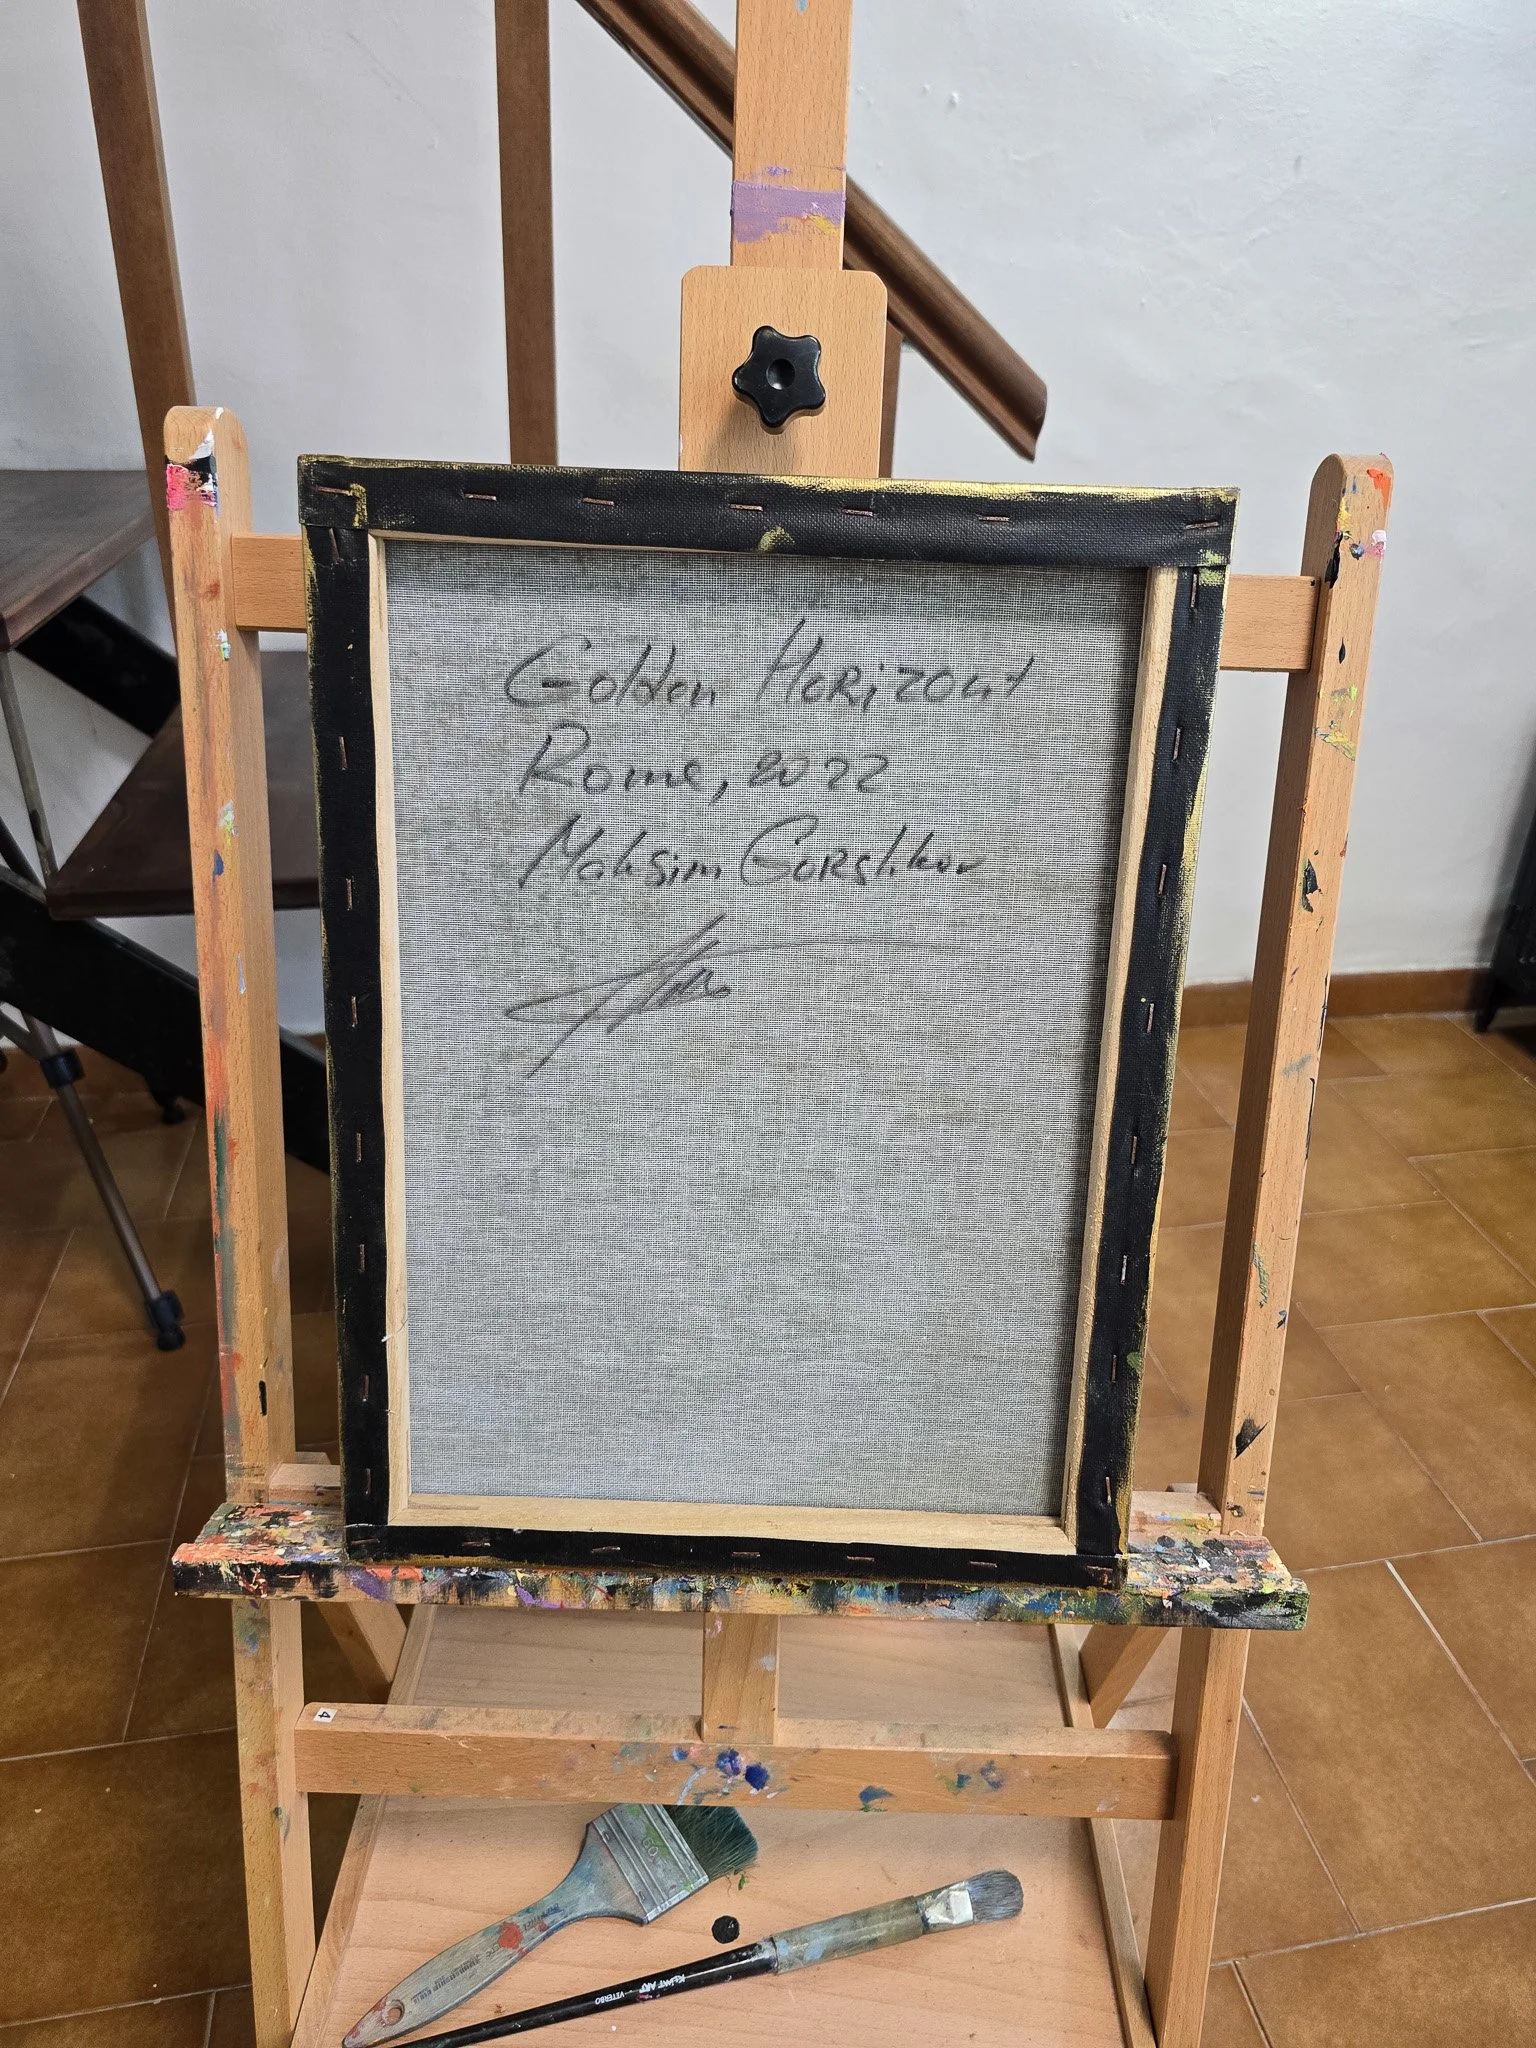 Golden Horizont
Rome, 2022
Maksim Gorshkov
4
60
KLIMT ART VITERBO